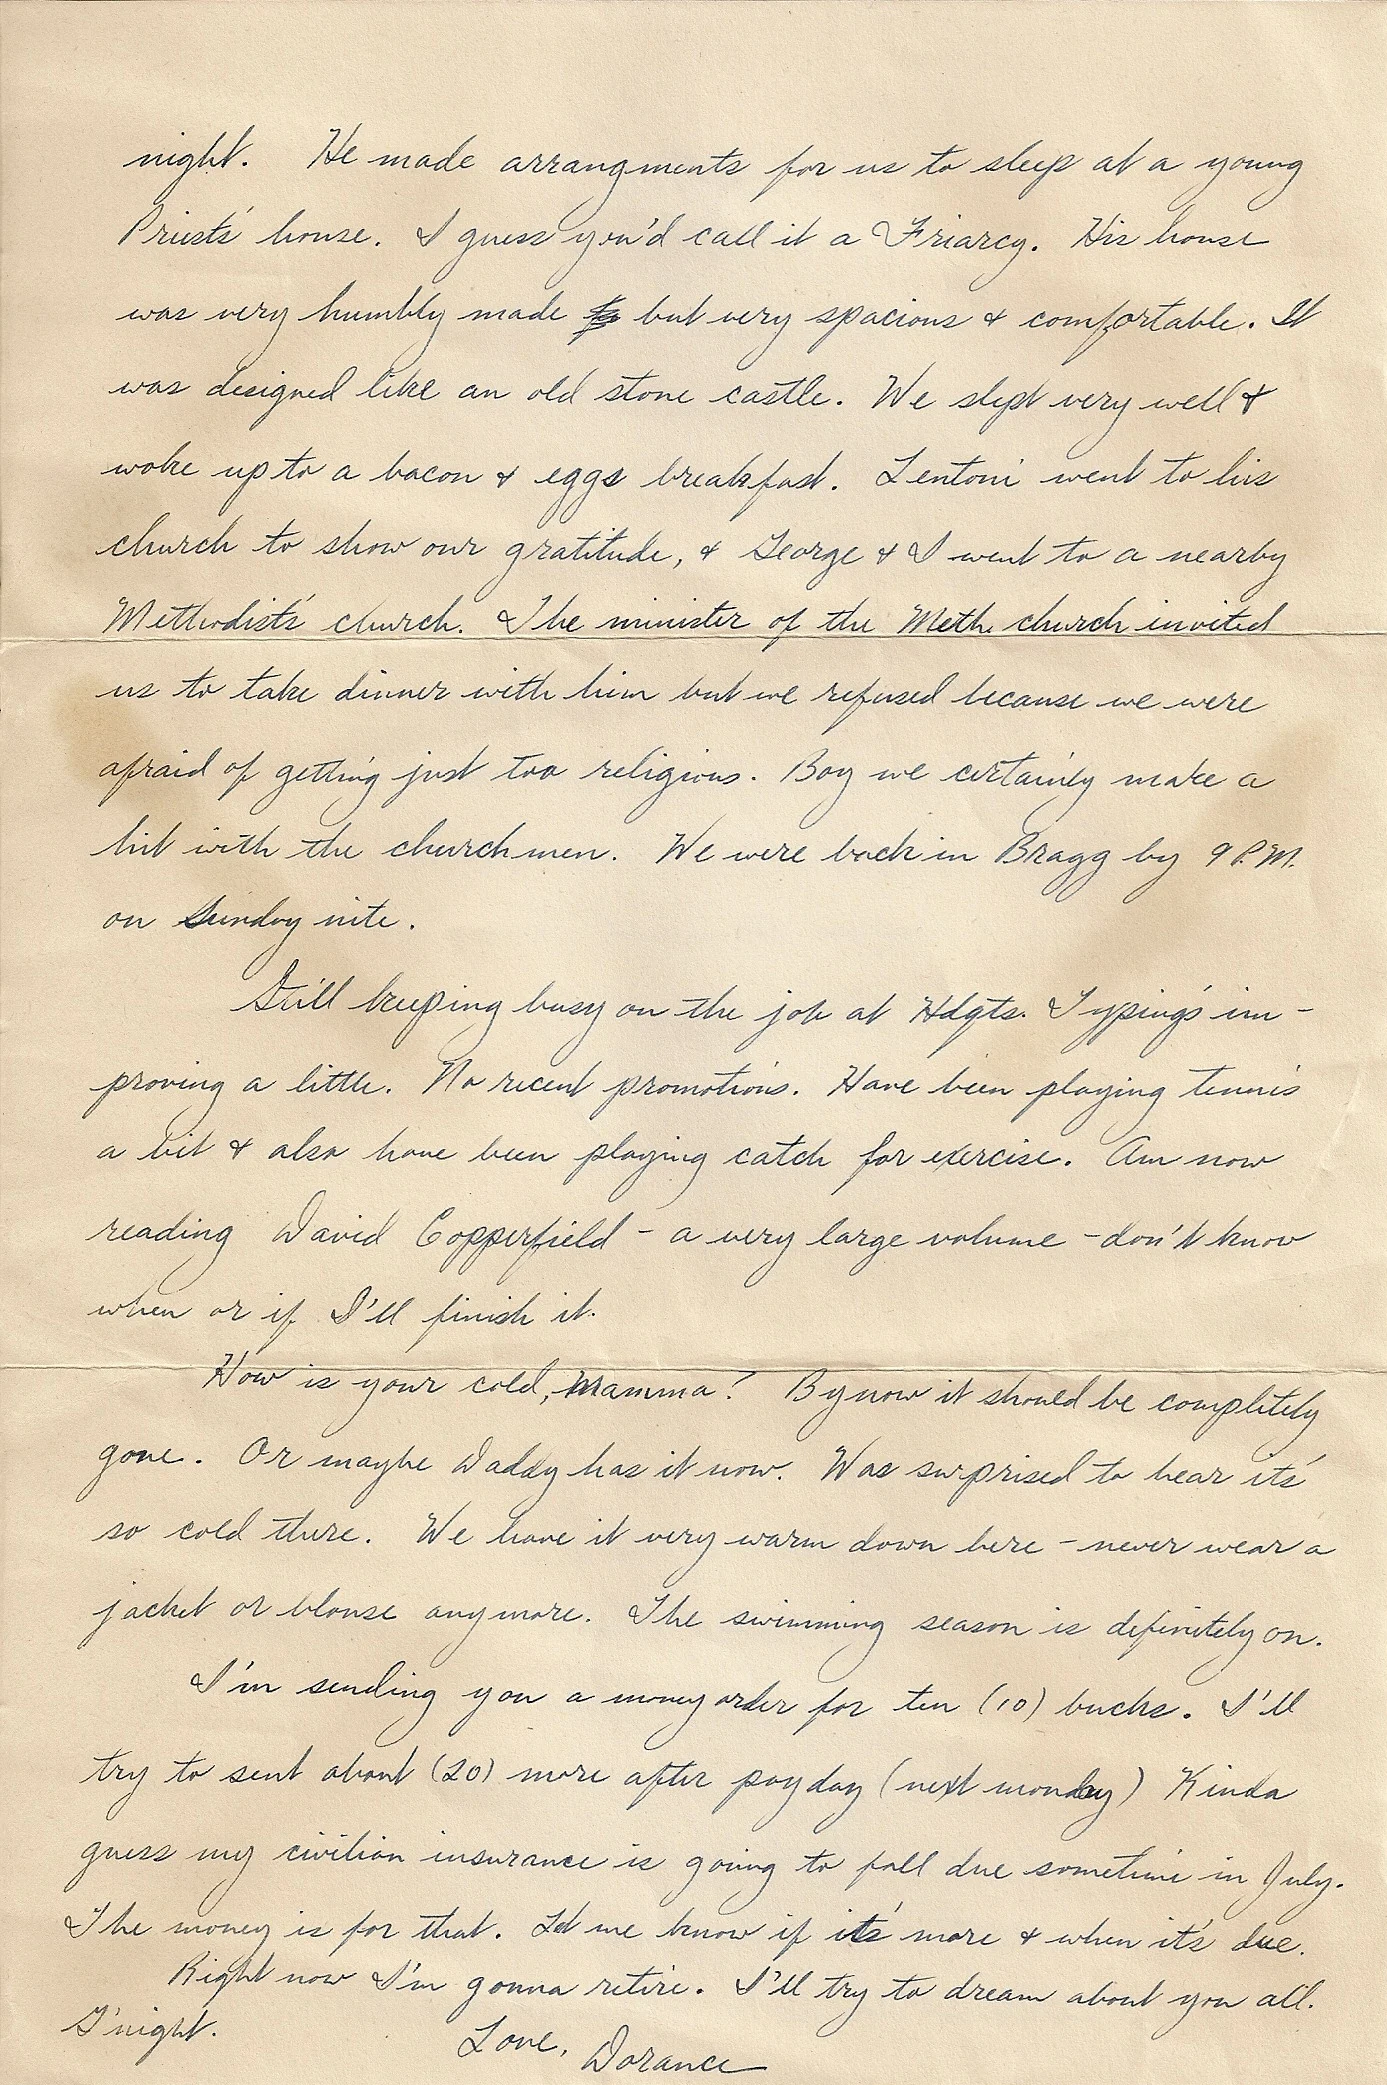 night. He made arrangments for us to sleep at a young
Priests' house. I guess you'd call it a Friarcy. His house
was very humbly made but very spacious & comfortable. It
was designed like an old stone castle. We slept very well &
woke up to a bacon & eggs breakfast. Lentoni went to his
church to show our gratitude, & George & I went to a nearby
Methodist's church. The minister of the Meth. church invited
us to take dinner with him but we refused because we were
afraid of getting just too religious. Boy we certainly make a
hit with the churchmen. We were back in Bragg by 9 P.M.
on Sunday nite.
Still keeping busy on the job at Hdqts. Typing's im-
proving a little. No recent promotions. Have been playing tennis
a bit & also have been playing catch for exercise. Am now
reading David Copperfield - a very large volume - don't know
when or if I'll finish it.
How is your cold, Mamma? By now it should be completely
gone. Or maybe Daddy has it now. Was surprised to hear it's
so cold there. We have it very warm down here - never wear a
jacket or blouse anymore. The swimming season is definitely on.
I'm sending you a money order for ten (10) bucks. I'll
try to sent about (20) more after payday (next monday) Kinda
guess my civilian insurance is going to fall due sometime in July.
The money is for that. Let me know if it's more & when it's due.
Right now I'm gonna retire. I'll try to dream about you all.
G'night.
Love, Dorance